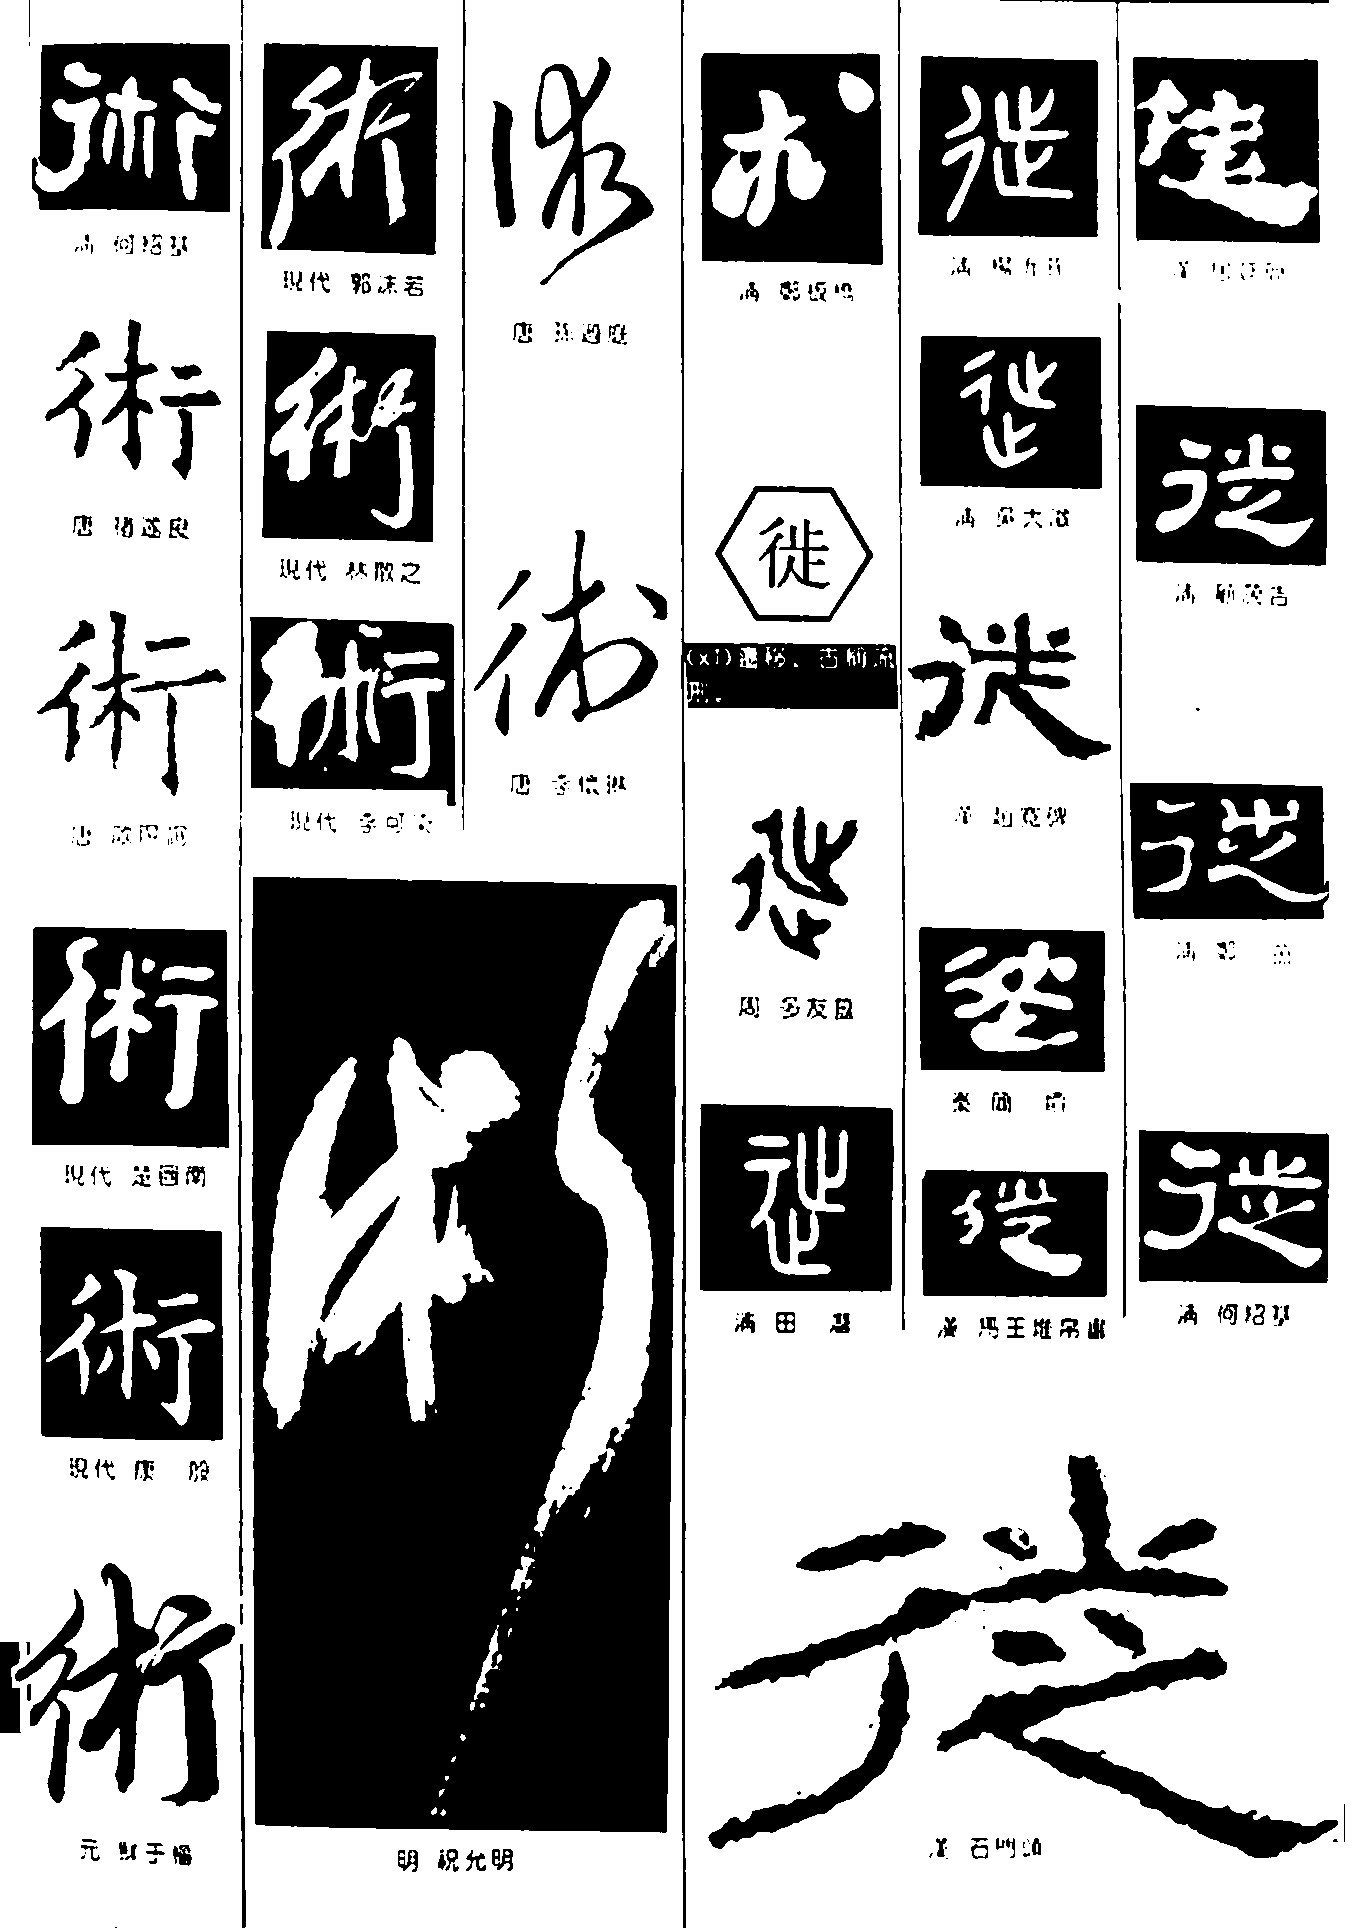 術
清 何紹基
術
唐 褚遂良
術
唐 歐陽詢
術
現代 楚圖南
術
現代 康 殷
術
元 鮮于樞
術
現代 郭沫若
術
現代 林散之
術
現代 李可染
術
明 祝允明
術
唐 孫過庭
術
唐 李懷琳
术
清 鄭板橋
徙
(xǐ)遷移。古稱流
刑。
徙
周
徙
清 田
徙
清 楊沂孫
徙
清 吳大澂
徙
漢 趙寬碑
徙
秦 簡
徙
漢 馬王堆帛書
徙
漢
徙
清
徙
清 鄭
徙
清 何紹基
徙
漢 石門頌